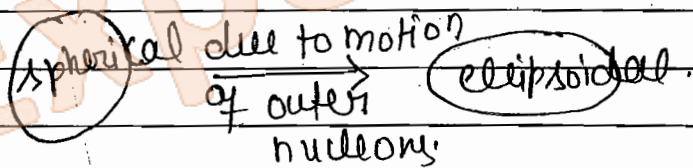 spherical due to motion of outer nucleons. → ellipsoidal.